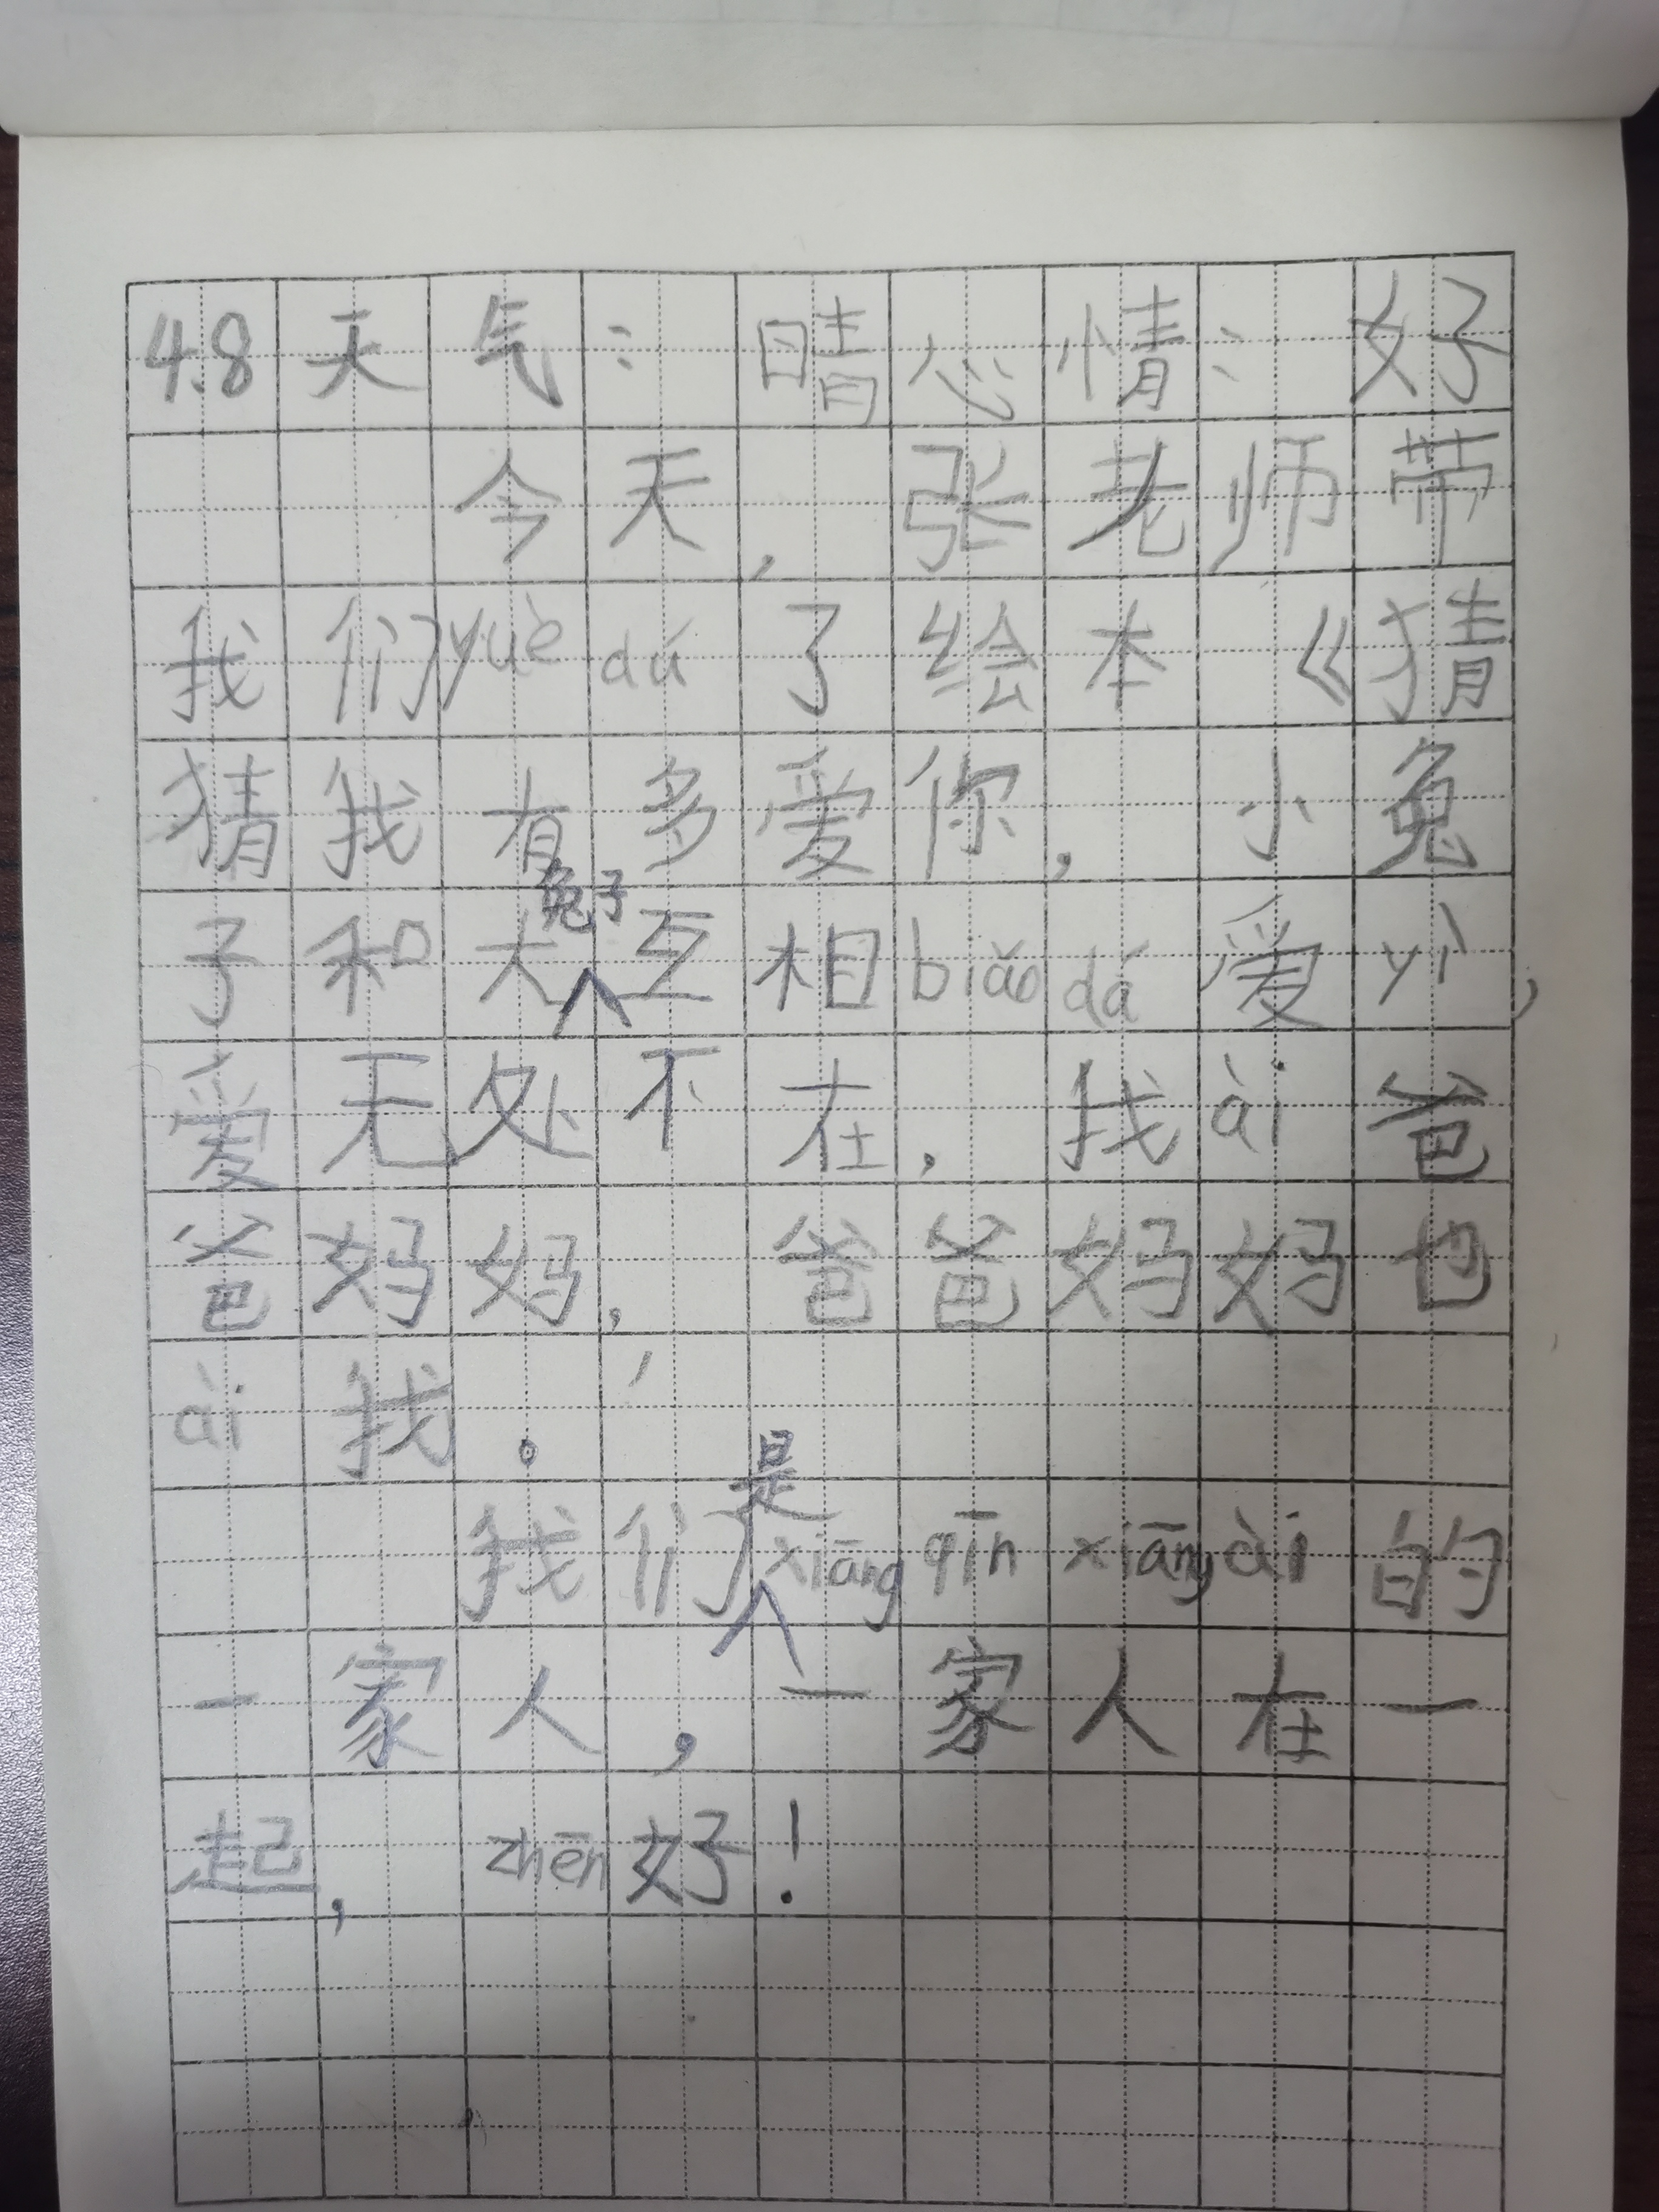 4.8天气：晴心情：好
今天，张老师带
我们yuè dá了绘本《猜
猜我有多爱你，小兔
子和大兔子互相biǎo dá爱yì，
爱无处不在．我ài爸
爸妈妈，爸爸妈妈也
ài我。
我们是xiāng qīn xiāng ài的
一家人，一家人在一
起，zhēn好！